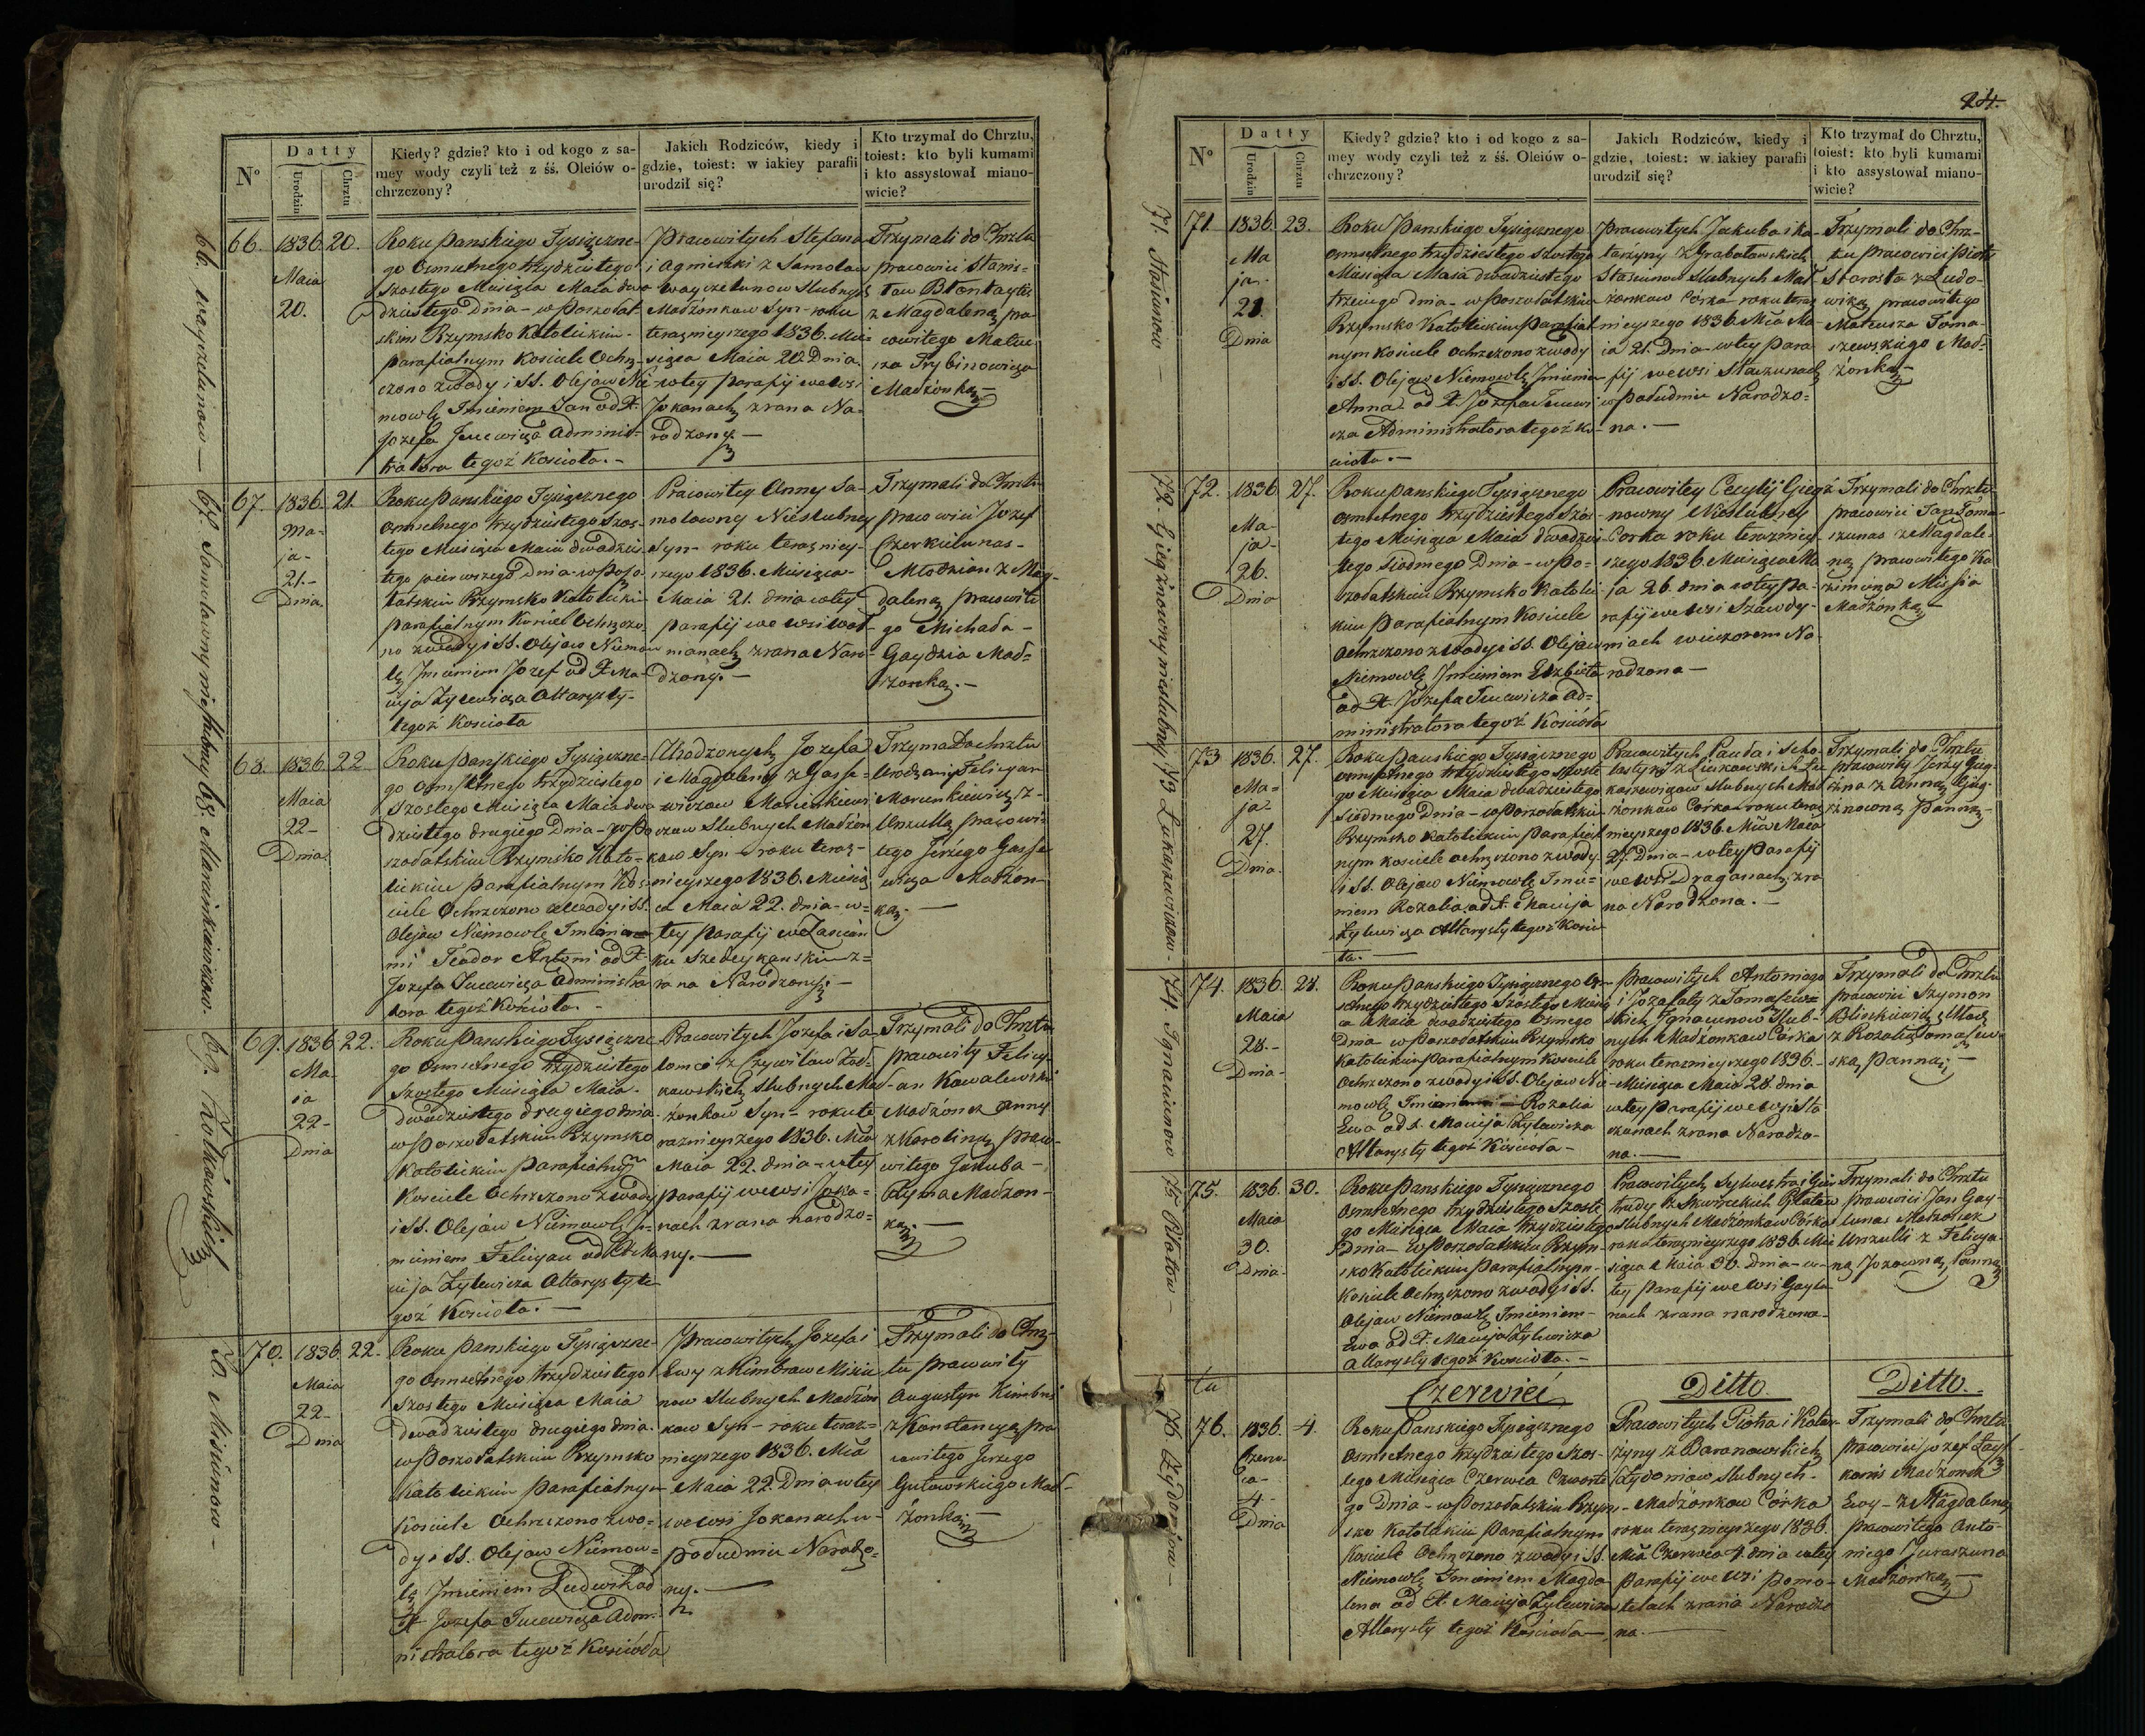 24.
N°
Datty
Urodzin
Chrztu
Kiedy? gdzie? kto i od kogo z sa-
mey wody czyli też z śś. Oleiów o-
chrzczony?
Jakich Rodziców, kiedy i
gdzie, toiest: w iakiey parafii
urodził się?
Kto trzymał do Chrztu,
toiest: kto byli kumami
i kto assystował miano-
wicie?
66.
1836
Maia
20.
20.
Roku Panskiego Tysiączne-
go Osmsetnego trzydziestego
Szostego Miesiąca Maia dwa
dziestego Dnia - w Poszołat
skim Rzymsko Katolickim
parafialnym Kosciele Ochrz-
czono z wody i SS. Olejow Nie
mowle Imieniem Jan od X.
Jozefa Jucewicza Adminis-
tratora tegoż Kościoła.-
Pracowitych Stefana
i Agnieszki z Samolow
Małżonkow Syn - roku
teraznieyszego 1836. Mie-
siąca Maia 20. Dnia
w tey Parafij we wsi
Jokanach z rana Na-
rodzony.-
Trzymali do Chrztu
pracowici Stanis-
z Magdaleną pra
cowitego Mateu
sza Trybinowicza
Małżonką.-
67.
1836.
Ma-
ja-
21.-
Dnia
21.
Roku Panskiego Tysiącznego
Osmsetnego trzydziestego Szos-
tego Miesiąca Maia dwadzies-
tego pierwszego Dnia - w Poszo-
łatskim Rzymsko Katolickim
parafialnym Kosciele Ochrzczo
no z wody i SS. Olejow Niemow
le Imieniem Jozef od X. Ma-
cieja Zylewicza Altarysty
tegoż Kościoła
Pracowitey Anny Sa-
molowny Nieslubney
Syn - roku teraz niey-
szego 1836. Miesiąca
Maia 21. dnia w tey
parafij we wsi
z rana Naro-
dzony.-
Trzymali do Chrztu
pracowici Jozef
Młodzian z Mag-
daleną pracowite
go Michała -
Gaydzia Mał-
żonką.-
68.
1836.
Maia
22-
Dnia
22
Roku Panskiego Tysiączne-
go Osmsetnego trzydziestego
Szostego Miesiąca Maia dwa
dziestego drugiego Dnia - w Po
szołatskim Rzymsko Kato-
lickim parafialnym Koś-
ciele Ochrzczono z wody i SS.
Olejow Niemowle Imiona
mi Teodor Antoni od X.
Jozefa Jucewicza Administra
tora tegoż Kościoła.-
Urodzonych Jozefa
i Magdaleny z Gasse-
wiczow Marcinkiewi
czow Slubnych Małżon
kow Syn - roku teraz-
nieyszego 1836. Miesią
ca Maia 22. dnia - w
tey Parafij w Zascian
ku Szedeykanskim z
rana Narodzony.-
Trzymali do chrztu
Urodzony Felicyan
Marcinkiewicz z
Urszulą pracowi-
tego Jerzego Gasse
wicza Małżon-
ką.-
69.
1836.
Ma
ia
22-
Dnia
22.
Roku Panskiego Tysiączne
go Osmsetnego trzydziestego
Szostego Miesiąca Maia
dwadziestego drugiego dnia
w Poszołatskim Rzymsko
Katolickim Parafialnym
Kosciele Ochrzczono z wody
i SS. Olejow Niemowle I-
mieniem Felicyan od X. Ma
cieja Zylewicza Altarysty te
goż Kościoła.-
Pracowitych Jozefa i Sa
lomei z Czywilow Żoł-
kowskich Slubnych Mał
żonkow Syn - roku te
raznieyszego 1836. Mca
Maia 22. dnia - w tey
parafij we wsi Joka-
nach z rana narodzo-
ny.-
Trzymali do Chrztu
pracowity Felicy-
an Kowalewski
Małżonek Anny
z Karoliną praco-
witego Jakuba -
Rymo Małżon-
ką.-
70.
1836.
Maia
22-
Dnia
22.
Roku Panskiego Tysiączne-
go Osmsetnego trzydziestego
Szostego Miesiąca Maia
dwadziestego drugiego dnia
w Poszołatskim Rzymsko
Katolickim Parafialnym
Kosciele Ochrzczono z wo-
dy i SS. Olejow Niemow-
le Imieniem Ludwik od
X. Jozefa Jucewicza Admi
nistratora tegoż Kościoła
Pracowitych Jozefa i
Ewy z Kimbrow Misiu
now Slubnych Małżon
kow Syn - roku teraz-
nieyszego 1836. Mca
Maia 22. Dnia w tey
we wsi Jokanach w
południe Narodzo-
ny.-
Trzymali do Chrz-
tu pracowity
Augustyn Kimbris
z Konstancyą pra
cowitego Jerzego
Gutowskiego Mał-
żonką.-
66. Wayczelunow -
67. Samulowny nieslubney
68. Marcinkiewiczow.
69. Żołkowskich
70. Misiunow -
N°
Datty
Urodzin
Chrztu
Kiedy? gdzie? kto i od kogo z sa-
mey wody czyli też z śś. Oleiów o-
chrzczony?
Jakich Rodziców, kiedy i
gdzie, toiest: w iakiey parafii
urodził się?
Kto trzymał do Chrztu,
toiest: kto byli kumami
i kto assystował miano-
wicie?
71.
1836.
Ma
ja.
21.
Dnia
23.
Roku Panskiego Tysiącznego
Osmsetnego trzydziestego szostego
Miesiąca Maia dwadziestego
trzeciego dnia - w Poszołatskim
Rzymsko Katolickim Parafial
nym Kosciele ochrzczono z wody
i SS. Olejow Niemowle Imieniem
Anna od X. Jozefa Jucewi
cza Administratora tegoż Ko-
scioła.-
Pracowitych Jakuba i Ka-
tarzyny z Grabowskich
Stasiunow Slubnych Mał
żonkow Córka roku teraz
nieyszego 1836. Mca Ma-
ia 21. Dnia w tey Para
fij we wsi Staczunach
w Południe Narodzo-
na.-
Trzymali do Chrz-
tu pracowici Piotr
Starosta z Ludo-
wiką pracowitego
Mateusza Toma-
szewskiego Mał-
żonką.-
72.
1836
Ma-
ja-
26.
Dnia
27.
Roku Panskiego Tysiącznego
Osmsetnego trzydziestego Szos-
tego Miesiąca Maia dwadzies
tego Siodmego Dnia - w Po-
szołatskim Rzymsko Katolic
kim Parafialnym Kosciele
Ochrzczono z wody i SS. Olejow
Niemowle Imieniem Elzbieta
od X. Jozefa Jucewicza Ad-
ministratora tegoż Kościoła
Pracowitey Cecylij Giegz
nowny Nieslubney
Corka roku teraznіey-
szego 1836. Miesiąca Ma
ja 26. dnia w tey Pa-
rafij we wsi Szawdy-
niach wieczorem Na
rodzona -
Trzymali do Chrztu
pracowici Jan Toma-
szunas z Magdale-
ną pracowitego Ka
zimierza Missia
Małżonką -
73
1836.
Ma-
ja
27.
Dnia
27.
Roku Panskiego Tysiącznego
osmsetnego trzydziestego szoste
go Miesiąca Maia dwadziestego
Siodmego Dnia - w Poszołatskim
Rzymsko Katolickim parafial
nym kosciele ochrzczono z wody
i SS. Olejow Niemowle Imie-
niem Rozalia od X. Macieja
Zylewicza Altarysty tegoż Koscio
ła.-
roku teraz
nieyszego 1836. Mca Maia
27. Dnia - w tey Parafij
we wsi Draganach z ra
na Narodzona.-
Trzymali do Chrztu
pracowity Jerzy
z Anną
Panną -
74.
1836
Maia
28.-
Dnia
28.
Roku Panskiego Tysiącznego Osm
setnego trzydziestego Szostego Miesią
ca Maia dwadziestego Osmego
Dnia w Poszołatskim Rzymsko
Katolickim Parafialnym Kosciele
Ochrzczono z wody i SS. Olejow Nie
mowle Rozalia
Ewa od X. Macieja Zylewicza
Altarysty tegoż Kościoła -
Pracowitych Antoniego
i Jozafaty z Tomaszew
skich Ignacunow Slub-
nych Małżonkow Córka
roku teraznieyszego 1836.
Miesiąca Maia 28. dnia
w tey Parafij we wsi Sta
czunach z rana Narodzo-
na.-
Trzymali do Chrztu
pracowici Szymon
z Rozalią Tomaszew-
ską Panną.-
75.
1836.
Maia
30.
Dnia
30.
Roku Panskiego Tysiącznego
Osmsetnego trzydziestego Szoste
go Miesiąca Maia trzydziestego
Dnia - w Poszołatskim Rzym-
sko Katolickim Parafialnym
Kosciele Ochrzczono z wody i SS.
Olejow Niemowle Imieniem
Ewa od X. Macieja Zylewicza
Altarysty tegoż Kościoła.-
Slubnych Małżonkow Córka
roku teraznieyszego 1836. Mie
siąca Maia 30. Dnia - w
tey Parafij we wsi
z rana narodzona -
Trzymali do Chrztu
pracowici Jan Gay-
lunas Małżonek
Urszuli z Felicya-
ną Jozowną Panną
Czerwiec
Ditto.
Ditto.
76.
1836.
Czerw-
ca-
4-
Dnia
4.
Roku Panskiego Tysiącznego
Osmsetnego trzydziestego Szos-
tego Miesiąca Czerwca Czwarte
go Dnia - w Poszołatskim Rzym-
sko Katolickim Parafialnym
Kosciele Ochrzczono z wody i SS.
Niemowle Imieniem Magda
lena od X. Macieja Zylewicza
Altarysty tegoż Kościoła -
Pracowitych Piotra i Katar-
zyny z Baranowskich
Żydoniow Slubnych
Małżonkow Córka
roku teraznieyszego 1836.
Mca Czerwca 4. dnia w tey
Parafij we wsi
z rana Narodzo
na.-
Trzymali do Chrztu
Pracowici Józef
Małżonek
Ewy - z Magdaleną
pracowitego Anto-
niego Juraszuna
Małżonką -
71. Stasiunow -
72. Giegżnowny nieslubney
73 Łukaszewiczow -
74. Ignacunow
75 Platow
76 Żydoniow -